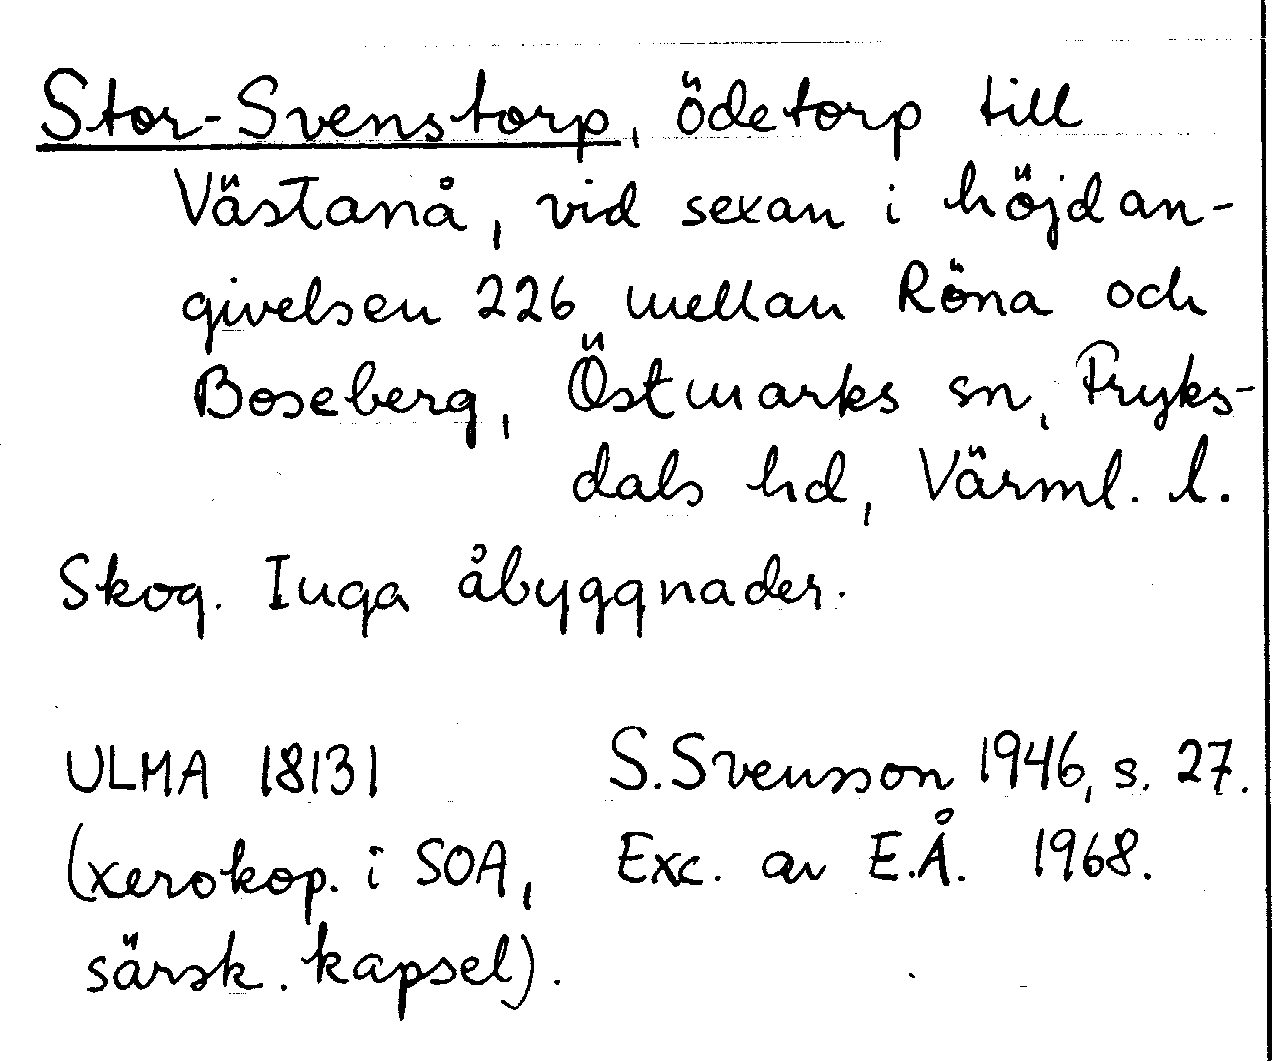 Stor-Svenstorp, ödetorp till
Västanå, vid sexan i höjdan-
givelsen 226 mellan Röna och
Boseberg, Östmarks sn, Fryks-
dals hd, Värml. l.
Skog. Inga åbyggnader.
ULMA 18131 S. Svensson 1946, s. 27.
(xerokop. i SOA, Exc. av E.Å. 1968.
särsk. kapsel).